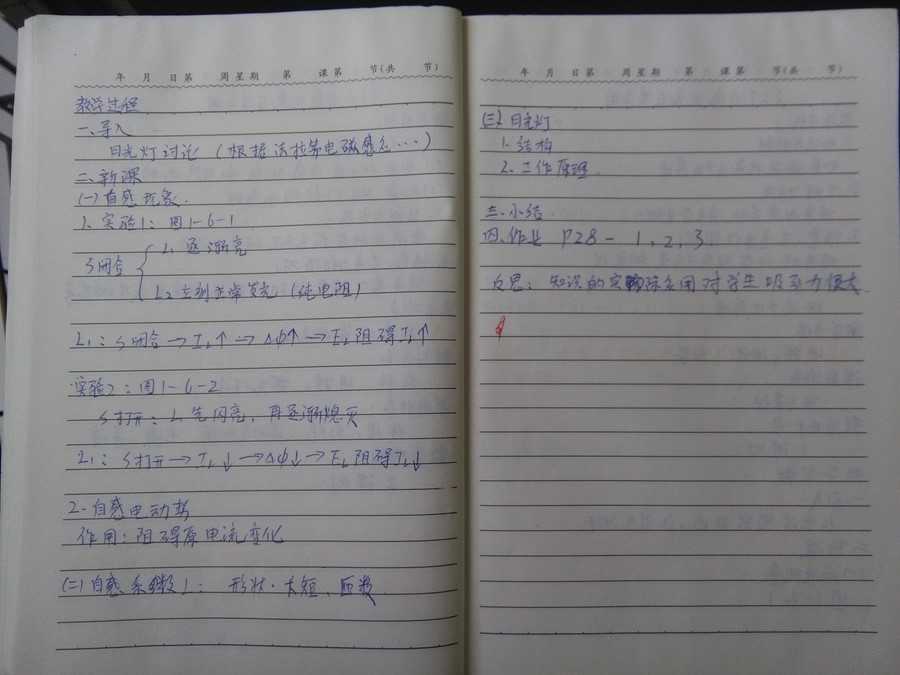 年 月 日第 周星期 第 课第 节(共 节)
教学过程
一、导入
日光灯讨论(根据法拉第电磁感应…)
二、新课
(一)自感现象.
1. 实验1: 图1-6-1
S闭合
L1 逐渐亮
L2 立刻正常发光(纯电阻)
L1: S闭合→IL↑→Δφ↑→EL阻碍IL↑
实验2: 图1-6-2
S打开: L 先闪亮, 再逐渐熄灭
L1: S打开→IL↓→Δφ↓→EL阻碍IL↓
2. 自感电动势
作用: 阻碍原电流变化
(二)自感系数L: 形状、长短、匝数
年 月 日第 周星期 第 课第 节(共 节)
(三)日光灯
1. 结构
2. 工作原理.
三、小结
四、作业 P28 - 1, 2, 3.
反思: 知识的实际应用对学生吸引力很大.